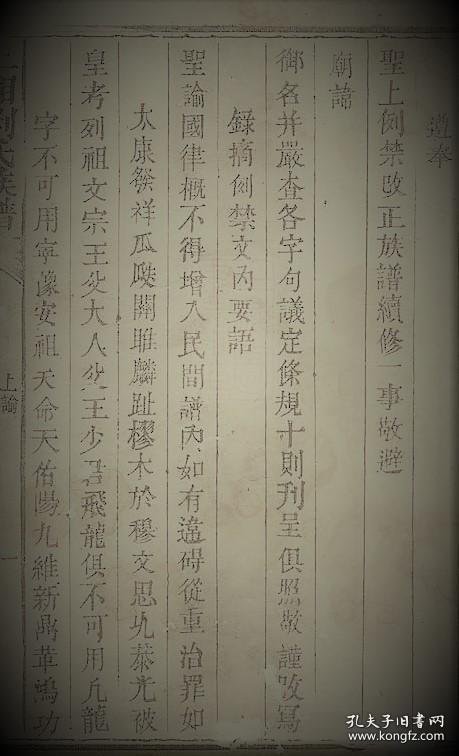 遵奉
聖上例禁改正族譜續修一事敬避
廟諱
御名并嚴查各字句議定條規十則刋呈俱照敬謹改寫
錄摘例禁文內要語
聖諭國律概不得增入民間譜內如有違碍從重治罪如
太康發祥瓜瓞關雎麟趾樛木於穆文思九恭光被
皇考列祖文宗王父大人父王少君飛龍俱不可用凢龍
字不可用寧像安祖天命天佑陽九維新鼎革鴻功
劉氏族譜
上諭
一
孔夫子旧书网
www.kongfz.com